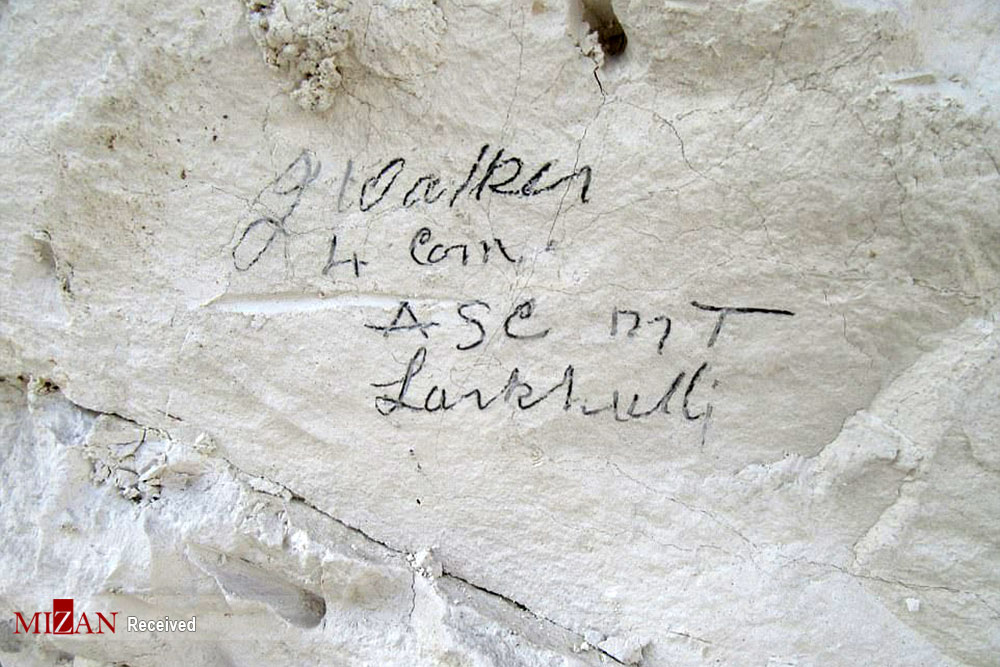 J Walker
4 Com.
ASC MT
Larkhill
MIZAN Received